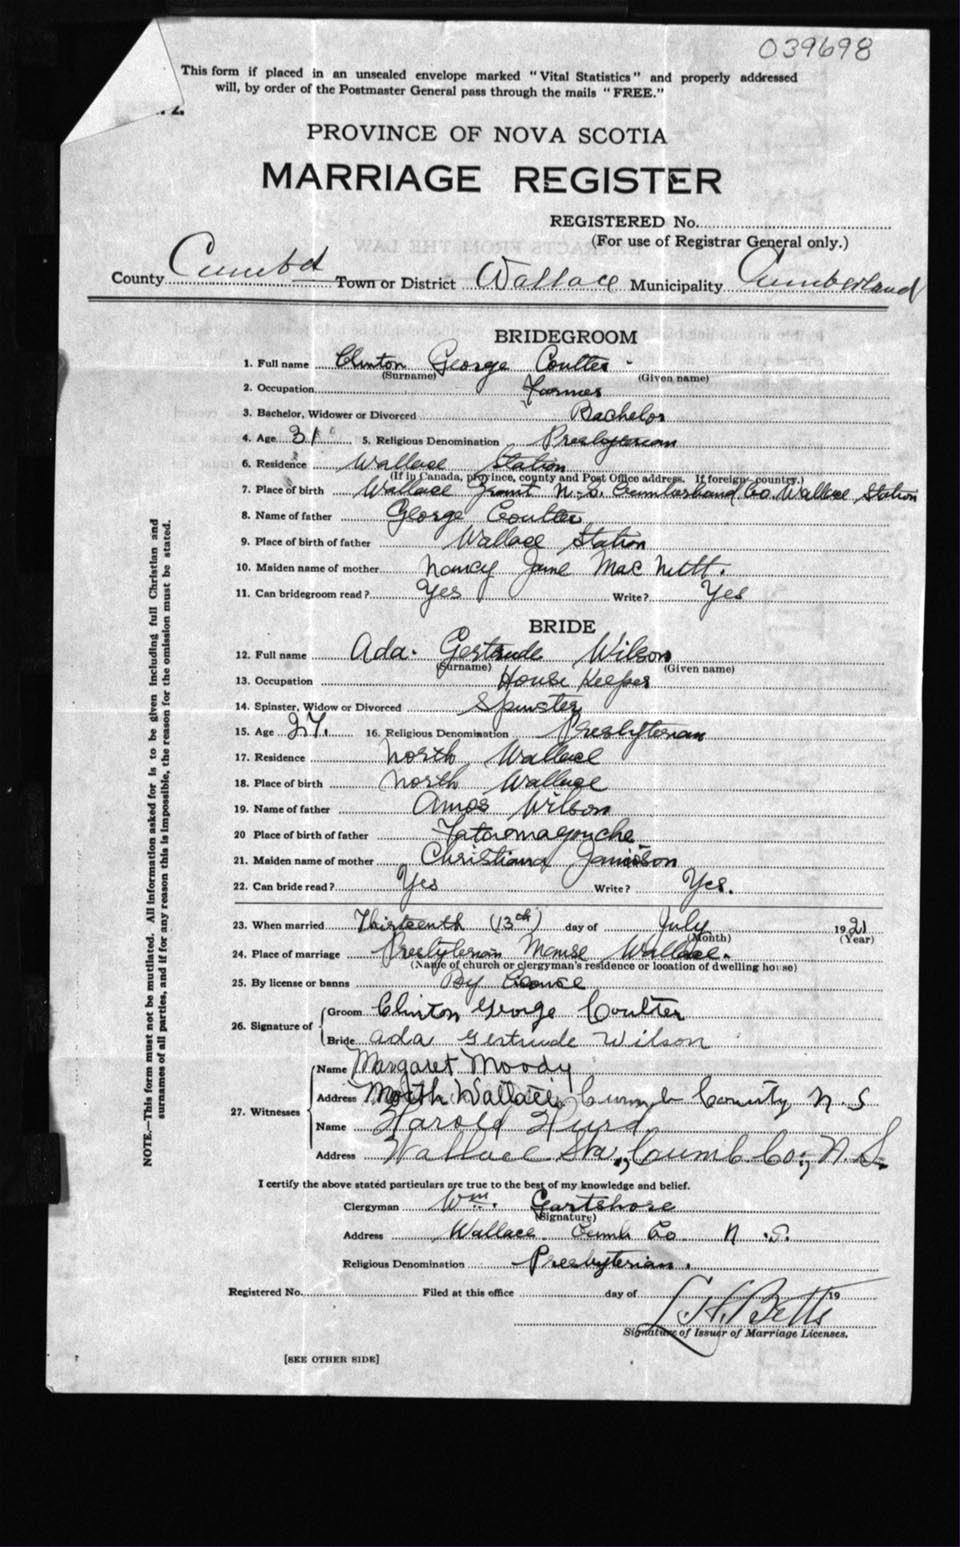 039698
This form if placed in an unsealed envelope marked "Vital Statistics" and properly addressed
will, by order of the Postmaster General pass through the mails "FREE."
PROVINCE OF NOVA SCOTIA
MARRIAGE REGISTER
REGISTERED No.
(For use of Registrar General only.)
County Cumb'd Town or District Wallace Municipality Cumberland
BRIDEGROOM
1. Full name Clinton George Coulter
(Surname) (Given name)
2. Occupation Farmer
3. Bachelor, Widower or Divorced Bachelor
4. Age 31 5. Religious Denomination Presbyterian
6. Residence Wallace Station
(If in Canada, province, county and Post Office address. If foreign country.)
7. Place of birth Wallace Grant N.S. Cumberland Co. Wallace Station
8. Name of father George Coulter
9. Place of birth of father Wallace Station
10. Maiden name of mother Nancy Jane Mac Nutt.
11. Can bridegroom read? Yes Write? Yes
BRIDE
12. Full name Ada. Gertrude Wilson
(Surname) (Given name)
13. Occupation House Keeper
14. Spinster, Widow or Divorced Spinster
15. Age 27. 16. Religious Denomination Presbyterian
17. Residence North Wallace
18. Place of birth North Wallace
19. Name of father Amos Wilson
20 Place of birth of father Tatamagouche
21. Maiden name of mother Christiana Jamieson
22. Can bride read? Yes Write? Yes.
23. When married Thirteenth (13th) day of July 1921
(Month) (Year)
24. Place of marriage Presbyterian Manse Wallace.
(Name of church or clergyman's residence or location of dwelling house)
25. By license or banns By Licence
26. Signature of Groom Clinton George Coulter
Bride Ada Gertrude Wilson
27. Witnesses Name Margaret Moody
Address North Wallace, Cumb County N.S
Name Harold Hurd
Address Wallace Sta., Cumb. Co., N.S.
I certify the above stated particulars are true to the best of my knowledge and belief.
Clergyman Wm. Gartshore
(Signature)
Address Wallace Cumb Co N.S.
Religious Denomination Presbyterian.
Registered No. Filed at this office day of 19
L.H. Betts
Signature of Issuer of Marriage Licenses.
[SEE OTHER SIDE]
NOTE.—This form must not be mutilated. All information asked for is to be given including full Christian and
surnames of all parties, and if for any reason this is impossible, the reason for the omission must be stated.